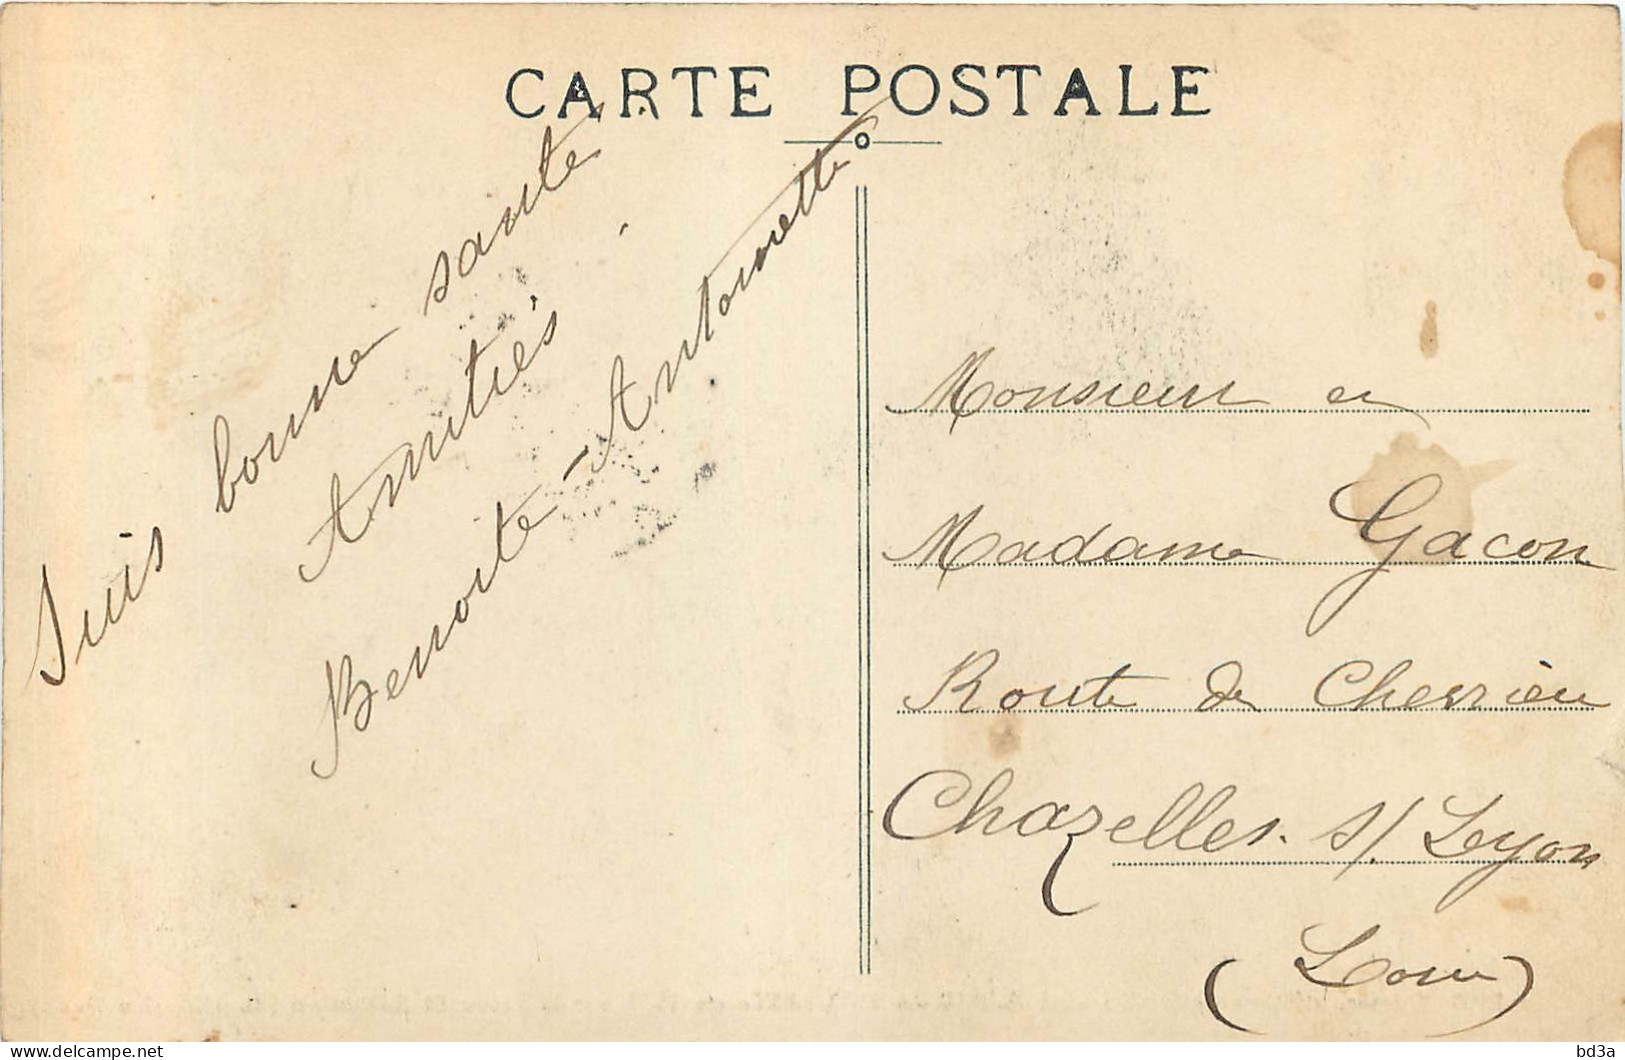 CARTE POSTALE
Suis bonne santé
Amitiés
Benoite - Antoinette
Monsieur et
Madame Gacon
Route de Chevrières
Chazelles s/ Lyon
(Loire)
bd3a